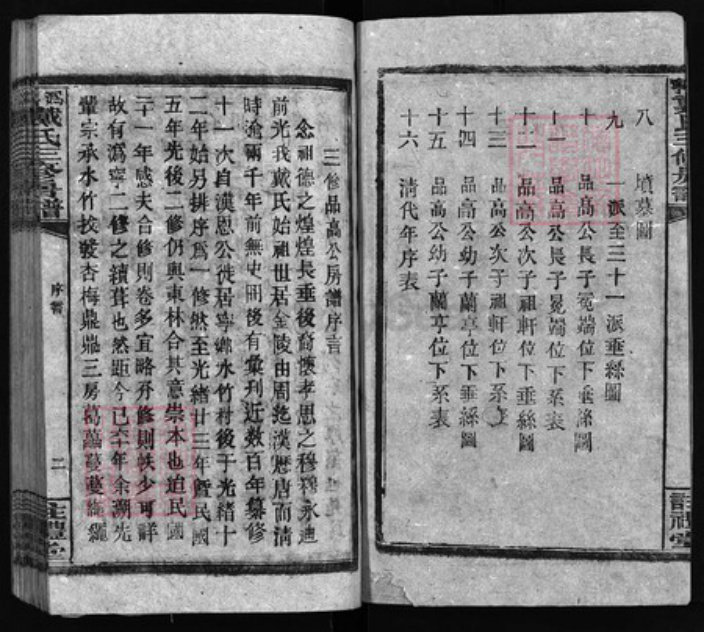 八　墳墓圖
九　一派至三十一派垂絲圖
十　品高公長子冕端位下垂絲圖
十一　品高公長子冕端位下系表
十二　品高公次子祖軒位下垂絲圖
十三　品高公次子祖軒位下系表
十四　品高公幼子蘭亭位下垂絲圖
十五　品高公幼子蘭亭位下系表
十六　清代年序表
註禮堂
三修品高公房譜序言
念祖德之煌煌長垂後裔懷孝思之穆穆永迪
前光我戴氏始祖世居金陵由周迄漢歷唐而清
時淦兩千年前無史冊後有彙刊近數百年纂修
十一次自漢恩公徙居寧鄉水竹村後于光緒十
二年始另排序為一修然至光緒廿三年暨民國
五年先後二修仍與東林合其意崇本也迨民國
三十一年感夫合修則卷多宜略分修則帙少可詳
故有溈寧二修之續葺也然距今已六年余溯先
輩宗承水竹枝發杏梅鼎鼎三房葛藟蔓蔓繩繩
戴氏三修房譜
序言
二
註禮堂